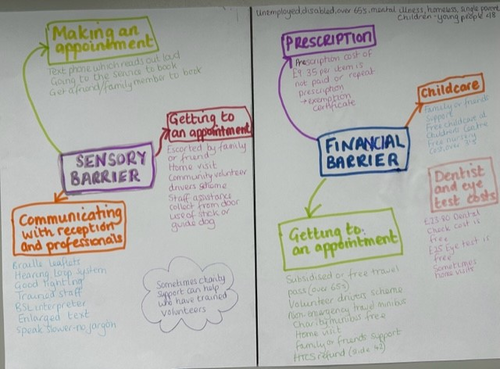 Making an
appointment
Text phone which reads out loud
Going to the service to book
Get a friend/family member to book
Getting to
an appointment
Escorted by family
or friend
Home visit
Community volunteer
drivers scheme
Staff assistance
collect from door
use of stick or
guide dog
SENSORY
BARRIER
Communicating
with reception
and professionals
Braille leaflets
Hearing loop system
Good lighting
Trained staff
BSL interpreter
Enlarged text
Speak slower-no jargon
Sometimes charity
support can help
we have trained
volunteers
Unemployed, disabled, over 65s, mental illness, homeless, single parent
Children - young people
PRESCRIPTION
Prescription cost of
£9.35 per item is
not paid or repeat
prescription
→ exemption
certificate
Childcare
Family or friends
support
Free childcare at
Childrens Centre
Free nursery
FINANCIAL
BARRIER
Dentist
and eye
test costs
Dental
Check cost is
free
£25 Eye test is
free
Sometimes
home visits
Getting to
an appointment
Subsidised or free travel
pass (over 65s)
Volunteer drivers scheme
Non-emergency travel minibus
Charity minibus free
Home visit
Family or friends support
HTCS refund